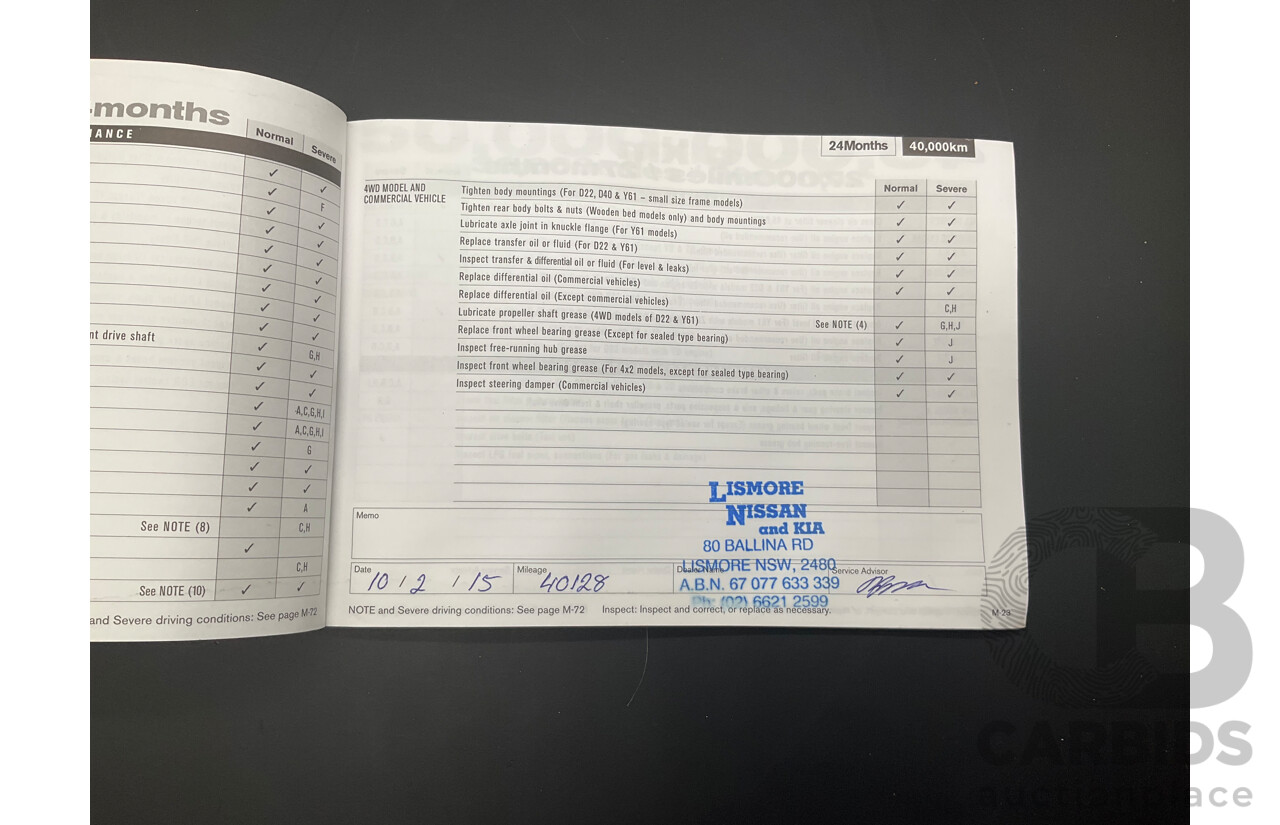 -months
ANCE
Normal
Severe
✓ ✓
✓ F
✓ ✓
✓ ✓
✓ ✓
✓ ✓
✓ ✓
✓ ✓
✓ ✓
nt drive shaft ✓ G,H
✓ ✓
✓ ✓
✓ A,C,G,H,I
✓ A,C,G,H,I
✓ G
✓ ✓
✓ ✓
✓ A
See NOTE (8) C,H
✓
C,H
See NOTE (10) ✓ ✓
and Severe driving conditions: See page M-72
24Months 40,000km
Normal Severe
4WD MODEL AND
COMMERCIAL VEHICLE
Tighten body mountings (For D22, D40 & Y61 – small size frame models) ✓ ✓
Tighten rear body bolts & nuts (Wooden bed models only) and body mountings ✓ ✓
Lubricate axle joint in knuckle flange (For Y61 models) ✓ ✓
Replace transfer oil or fluid (For D22 & Y61) ✓ ✓
Inspect transfer & differential oil or fluid (For level & leaks) ✓ ✓
Replace differential oil (Commercial vehicles) ✓ ✓
Replace differential oil (Except commercial vehicles) C,H
Lubricate propeller shaft grease (4WD models of D22 & Y61) See NOTE (4) ✓ G,H,J
Replace front wheel bearing grease (Except for sealed type bearing) ✓ J
Inspect free-running hub grease ✓ J
Inspect front wheel bearing grease (For 4x2 models, except for sealed type bearing) ✓ ✓
Inspect steering damper (Commercial vehicles) ✓ ✓
LISMORE
NISSAN
and KIA
80 BALLINA RD
LISMORE NSW, 2480
A.B.N. 67 077 633 339
Ph: (02) 6621 2599
Memo
Date
10 / 2 / 15
Mileage
40128
Service Advisor
NOTE and Severe driving conditions: See page M-72 Inspect: Inspect and correct, or replace as necessary.
M-23
CARBIDS
auctionplace